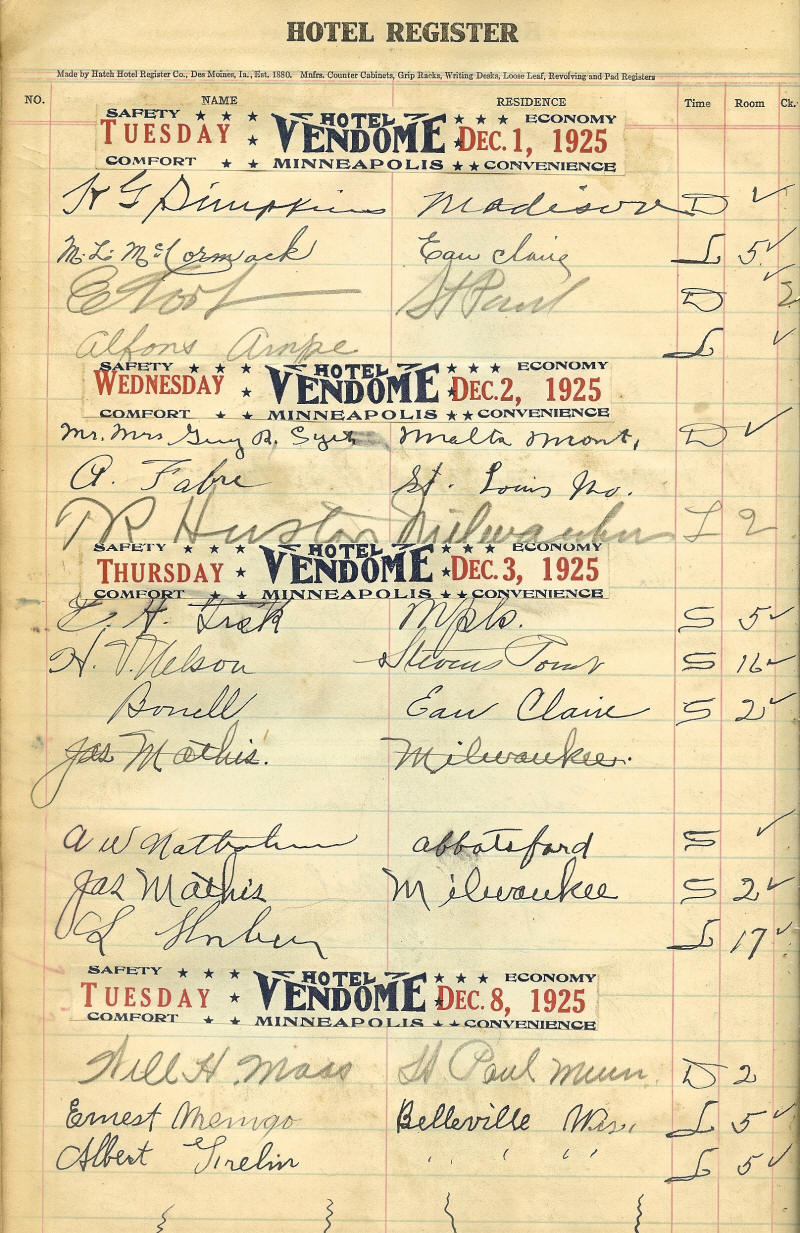 HOTEL REGISTER
Made by Hatch Hotel Register Co., Des Moines, Ia., Est. 1880. Mnfrs. Counter Cabinets, Grip Racks, Writing Desks, Loose Leaf, Revolving and Pad Registers
NO. NAME RESIDENCE Time Room Ck.
SAFETY HOTEL ECONOMY
TUESDAY VENDOME DEC. 1, 1925
COMFORT MINNEAPOLIS CONVENIENCE
H G Simpkins Madison D ✓
M. L. McCormack Eau Claire L 5 ✓
St Paul D ✓
Alfons Ampe L ✓
SAFETY HOTEL ECONOMY
WEDNESDAY VENDOME DEC. 2, 1925
COMFORT MINNEAPOLIS CONVENIENCE
Mr. Mrs Guy R. Malta Mont. D ✓
A. Fabre St. Louis Mo.
Huston Milwaukee L 2
SAFETY HOTEL ECONOMY
THURSDAY VENDOME DEC. 3, 1925
COMFORT MINNEAPOLIS CONVENIENCE
H. Mpls. S 5 ✓
H. V. Nelson Stevens Point S 16 ✓
Bonell Eau Claire S 2 ✓
Jas Mathis. Milwaukee.
A W abbotsford S ✓
Jas Mathis Milwaukee S 2 ✓
L L 17 ✓
SAFETY HOTEL ECONOMY
TUESDAY VENDOME DEC. 8, 1925
COMFORT MINNEAPOLIS CONVENIENCE
Will H. Moss St Paul Minn. D 2
Ernest Belleville Wis. L 5 ✓
Albert " " " L 5 ✓